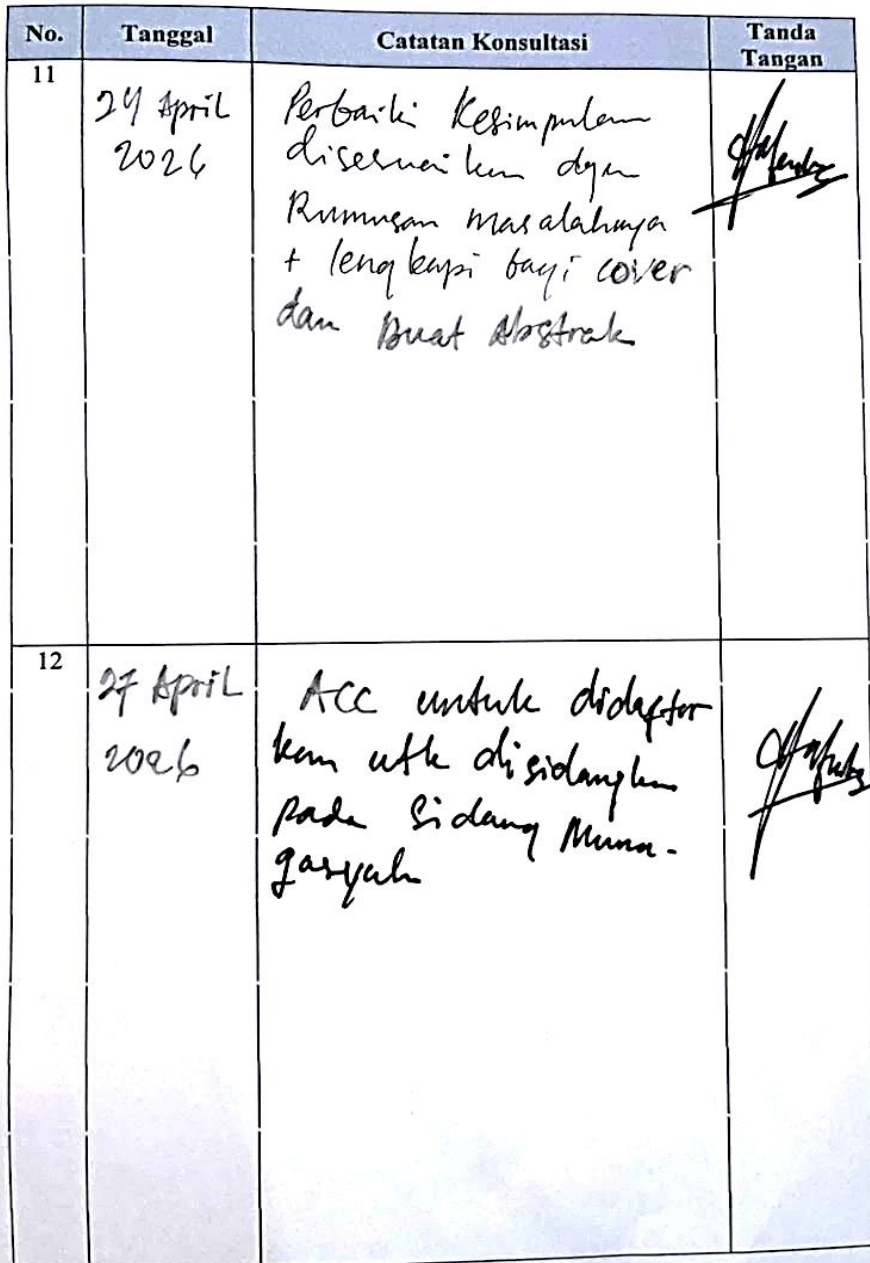 No. Tanggal Catatan Konsultasi Tanda Tangan
11
24 April
2026
Perbaiki Kesimpulan
disesuaikan dgn
Rumusan masalahnya
+ lengkapi bagi cover
dan Buat Abstrak
12
27 April
2026
ACC untuk didaftar
kan utk disidangkan
pada Sidang Muna-
qasyah